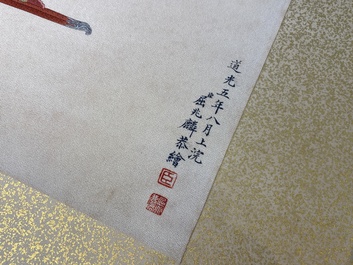 道光五年八月上浣
臣屈兆麟恭繪
臣